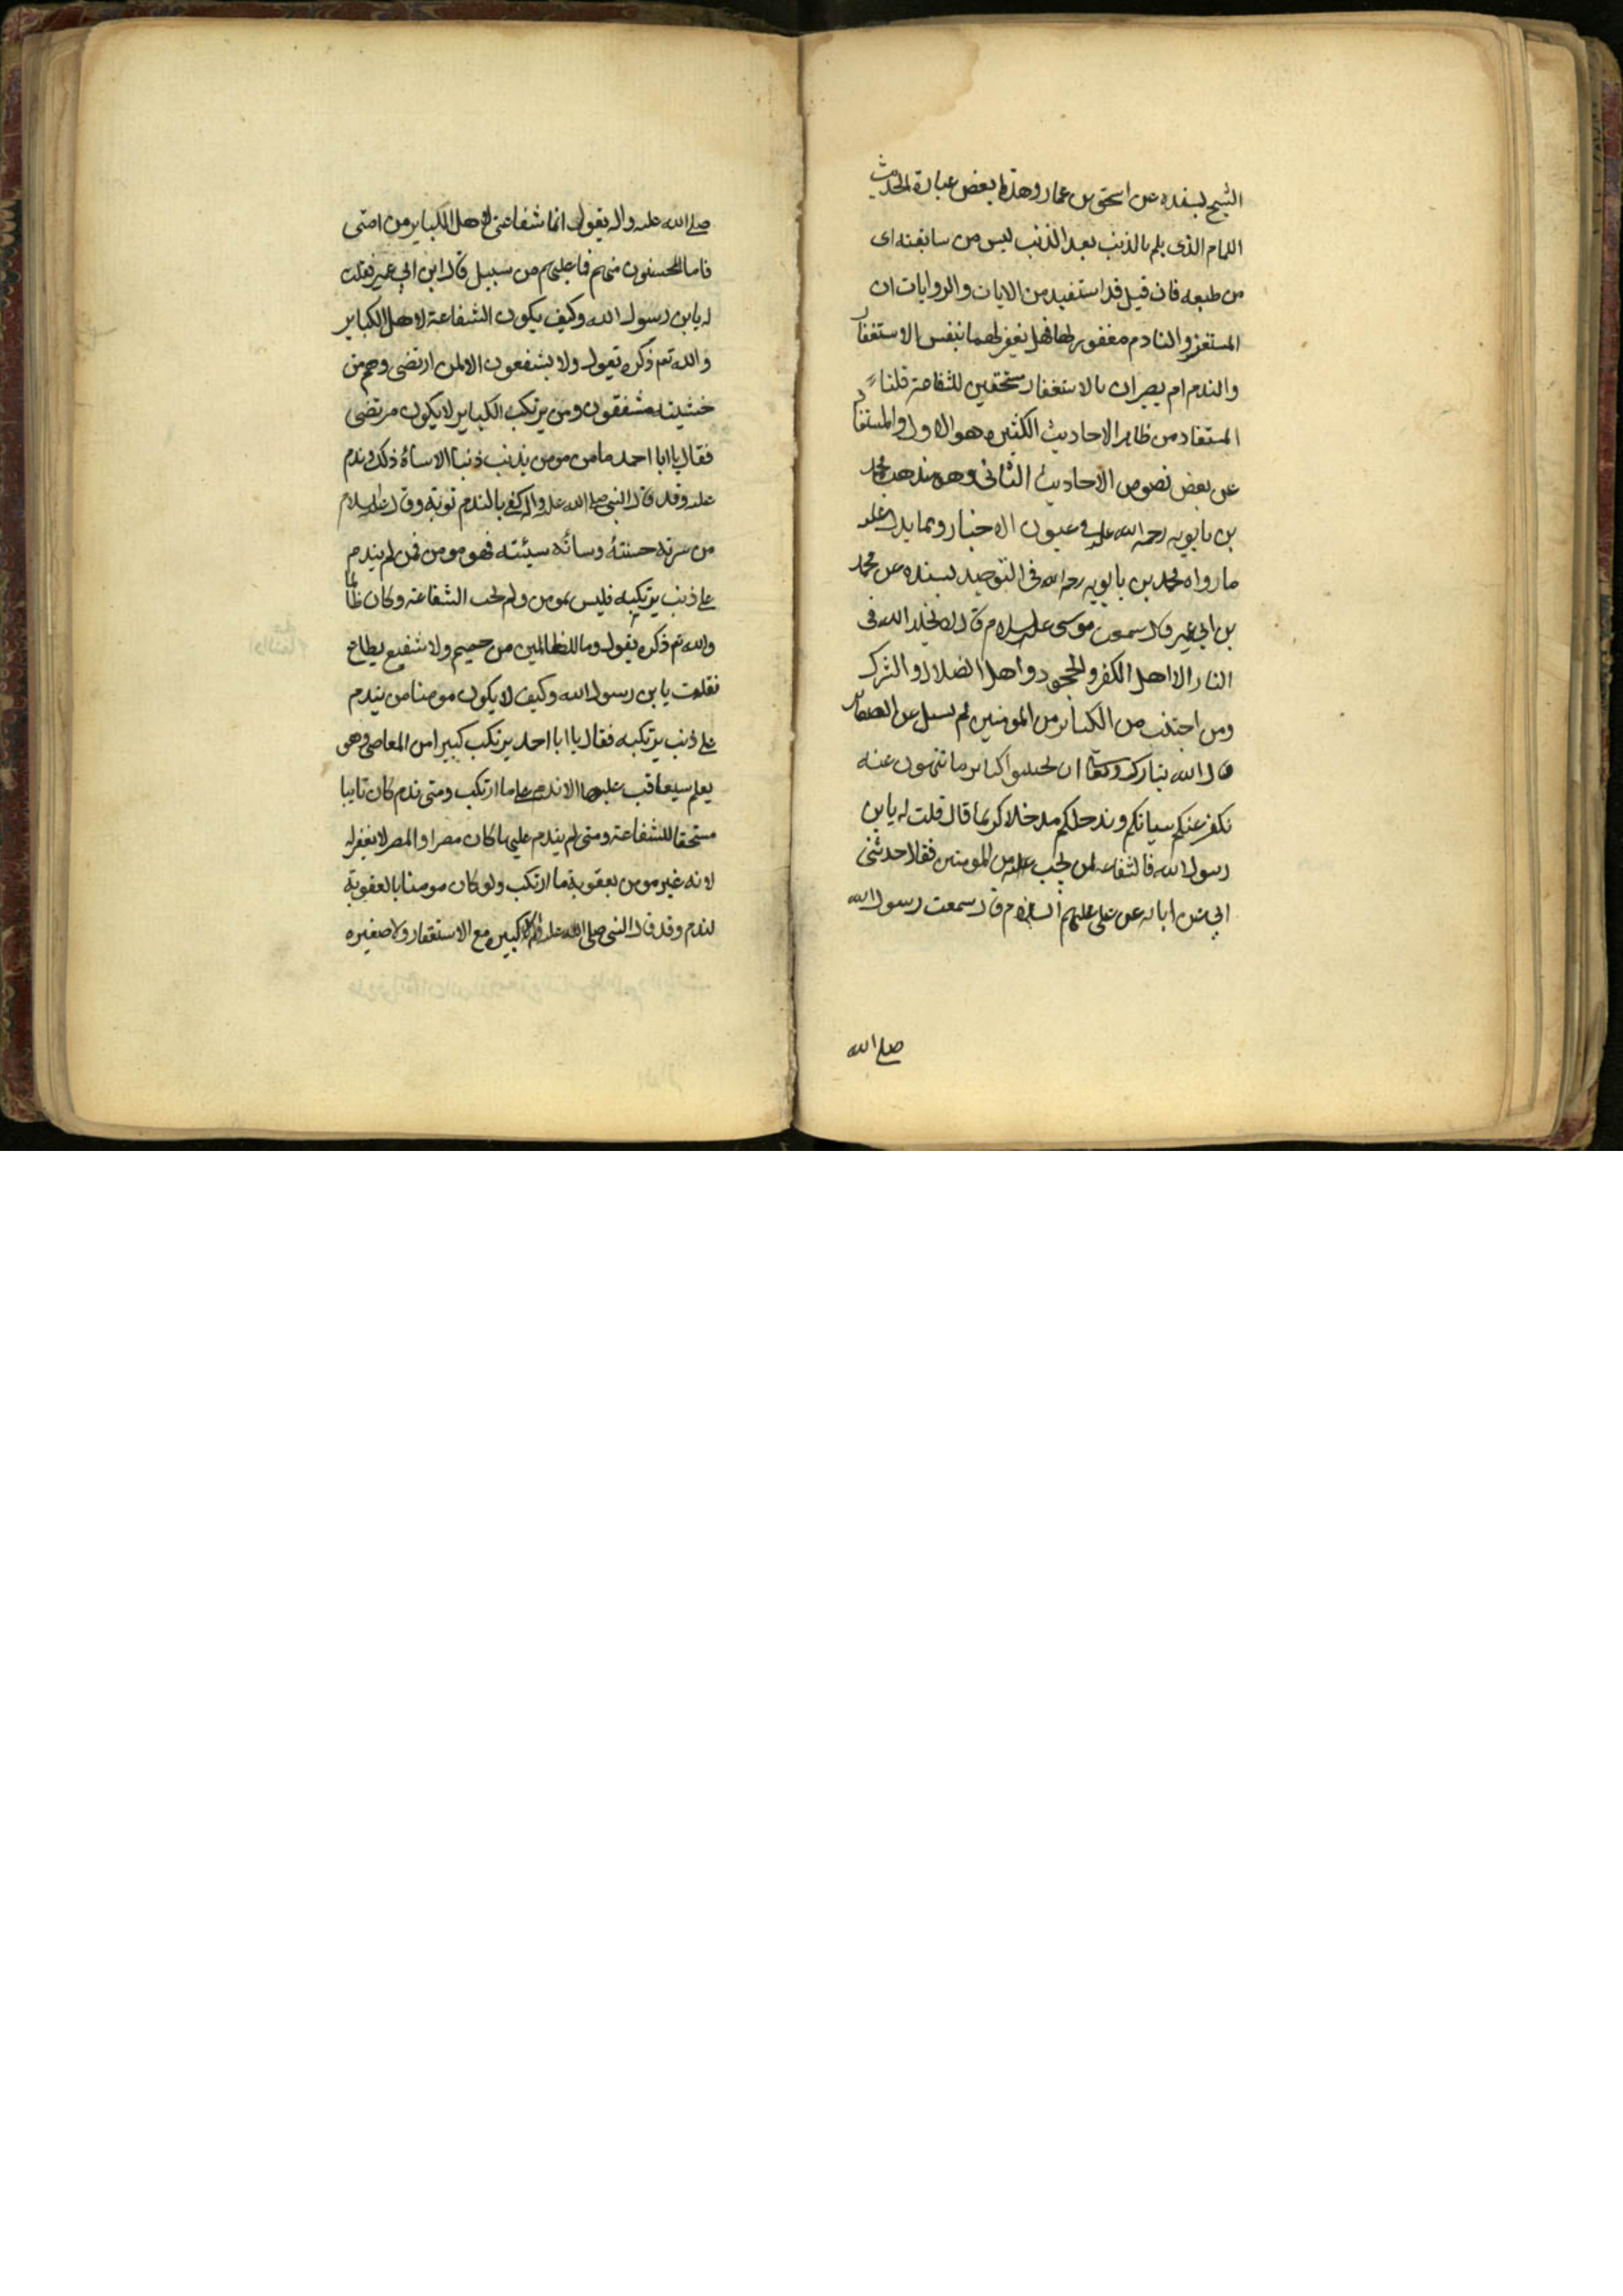 الشيخ بسنده عن اسحق بن عمار وهذا بعض عبارة الحديث
اللمام الذى يلم بالذنب بعد الذنب ليس من سابقته اى
من طبعه فان قيل قد استفيد من الايات والروايات ان
المستغفر والنادم مغفور لهما فهل يغفر لهما بنفس الاستغفار
والندم ام يصيران بالاستغفار مستحقين للشفاعة قلنا
المستفاد من ظاهر الاحاديث الكثيره هو الاول والمستفاد
عن بعض نصوص الاحاديث الثانى وهو مذهب محمد
بن بابويه رحمة الله عليه فى عيون الاخبار ومما يدل عليه
ما رواه محمد بن بابويه رحمه الله فى التوحيد بسنده عن محمد
بن ابى عمير قال سمعت موسى عليه السلام قال لا يخلد الله فى
النار الا اهل الكفر والجحود واهل الضلال والشرك
ومن اجتنب من الكبائر من المومنين لم يسئل عن الصغائر
قال الله تبارك وتعالى ان تجتنبوا كبائر ما تنهون عنه
نكفر عنكم سياتكم وندخلكم مدخلا كريما قال قلت له يابن
رسول الله فالشفاعه لمن تجب عليه من المومنين فقال حدثنى
ابى عن ابائه عن على عليهم السلام قال سمعت رسول الله
صلى الله
صلى الله عليه واله يقول انما شفاعتى لاهل الكباير من امتى
فاما المحسنون منهم فما عليهم من سبيل قال ابن ابى عمير فقلت
له يابن رسول الله وكيف يكون الشفاعة لاهل الكباير
والله تع ذكره يقول ولا يشفعون الا لمن ارتضى وهم من
خشيته مشفقون ومن يرتكب الكباير لا يكون مرتضى
فقال يا ابا احمد ما من مومن يذنب ذنبا الا ساءه ذلك وندم
عليه وقد قال النبى صلى الله عليه واله كفى بالندم توبة وقال عليه السلام
من سرته حسنته وسائته سيئته فهو مومن فمن لم يندم
على ذنب يرتكبه فليس بمومن ولم تجب الشفاعة وكان ظالما
والله تع ذكره يقول وما للظالمين من حميم ولا شفيع يطاع
فقلت يابن رسول الله وكيف لا يكون مومنا من يندم
على ذنب يرتكبه فقال يا ابا احمد يرتكب كبيرا من المعاصى وهى
يعلم سيعاقب عليها الا ندم على ما ارتكب ومتى ندم كان تايبا
مستحقا للشفاعة ومتى لم يندم عليها كان مصرا والمصر لا يغفر له
لانه غير مومن بعقوبة ما ارتكب ولو كان مومنا بالعقوبة
لندم وقد قال النبى صلى الله عليه واله لا كبيره مع الاستغفار ولا صغيره